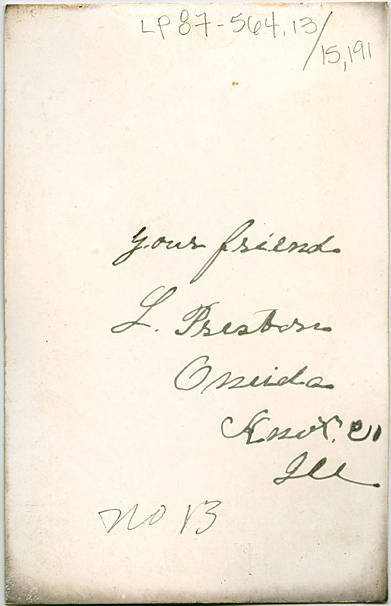 LP87-564.13/
15,191
your friend
L. Preston
Oneida
Knox.
Ill
no 13